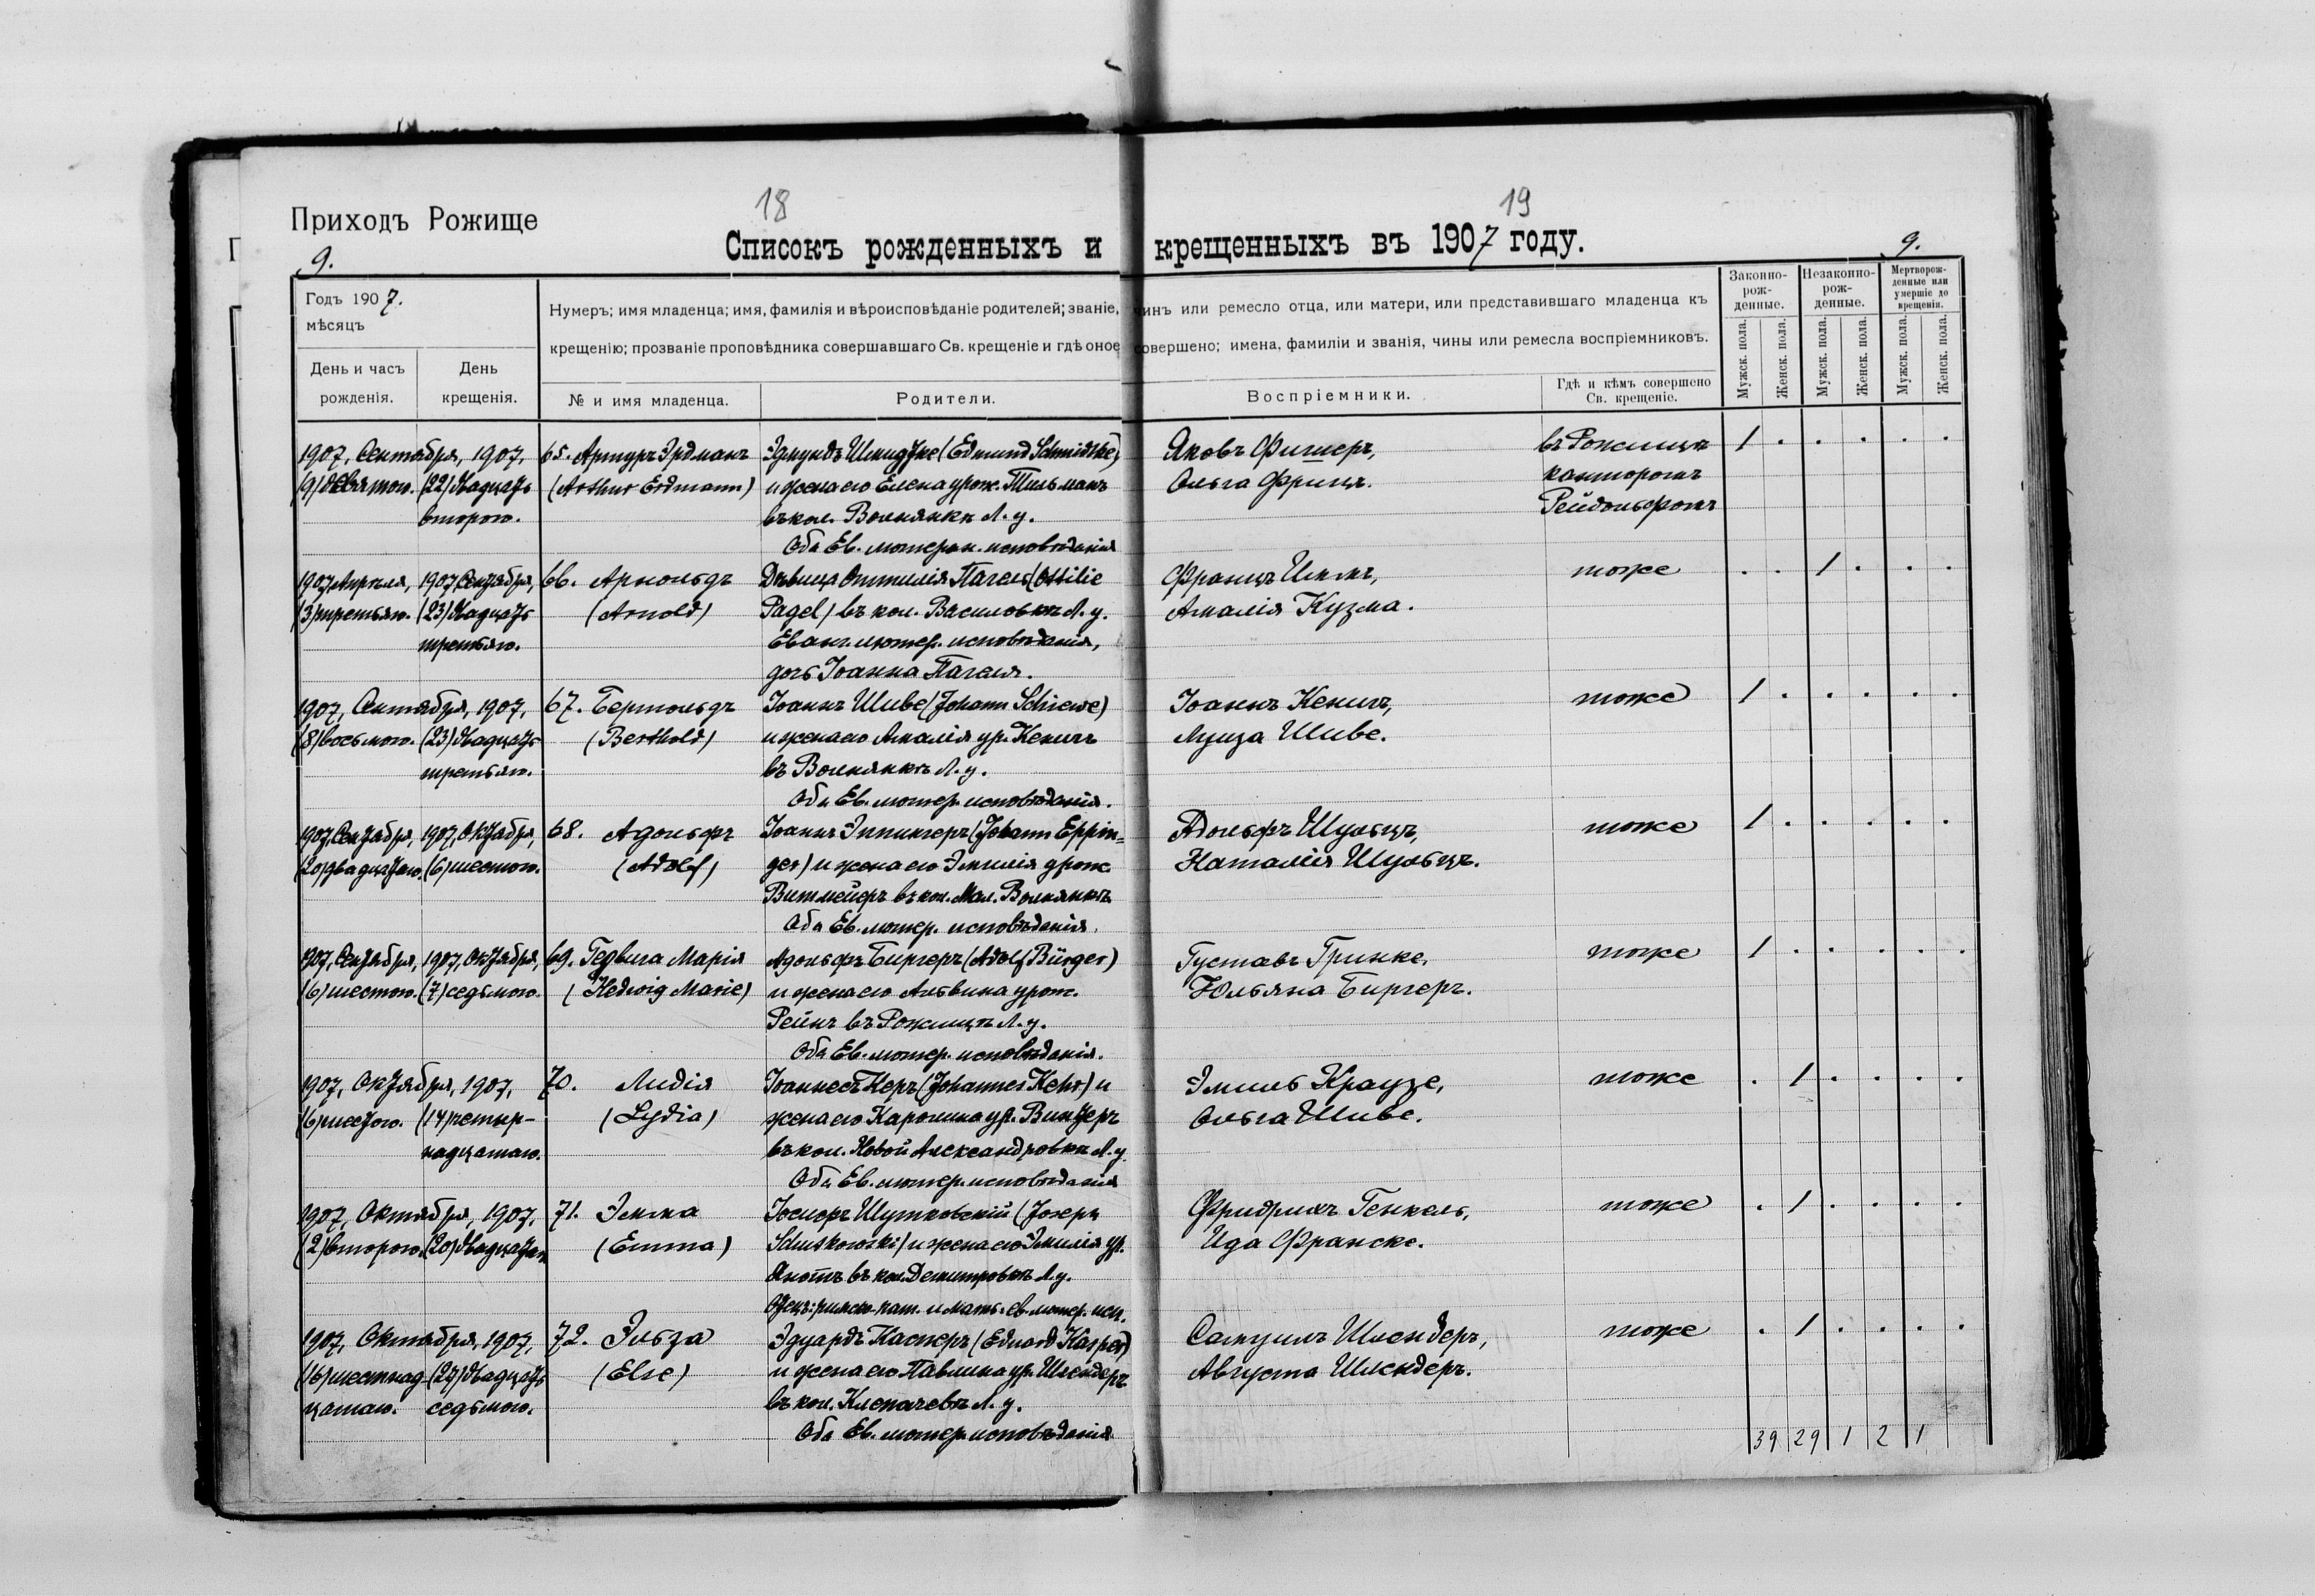 18
19
Приходъ Рожище
Списокъ рожденныхъ и крещенныхъ въ 1907 году.
9.
9.
Годъ 1907.
мѣсяцъ
День и часъ
рожденія.
День
крещенія.
Нумеръ; имя младенца; имя, фамилія и вѣроисповѣданіе родителей; званіе, чинъ или ремесло отца, или матери, или представившаго младенца къ
крещенію; прозваніе проповѣдника совершавшаго Св. крещеніе и гдѣ оное совершено; имена, фамиліи и званія, чины или ремесла воспріемниковъ.
№ и имя младенца.
Родители.
Воспріемники.
Гдѣ и кѣмъ совершено
Св. крещеніе.
Законно-
рож-
денные.
Незаконно-
рож-
денные.
Мертворож-
денные или
умершіе до
крещенія.
Мужск. пола.
Женск. пола.
Мужск. пола.
Женск. пола.
Мужск. пола.
Женск. пола.
1907, Сентября, 1907, 65. Артуръ Эрдманъ Эдмундъ Шмидтке (Edmund Schmidtke) Яковъ Фишеръ, въ Рожищѣ 1 . . . . .
(9) девятого. (22) двадцать (Arthur Erdmann) и жена его Елена урож. Тильманъ Ольга Фрицъ. канторомъ
второго. въ кол. Волнянкѣ Л. у. Рейдольфомъ
Оба Ев. лютеран. исповѣданія
1907, Апрѣля, 1907, Сентября, 66. Арнольдъ Дѣвица Оттилія Пагель (Ottilie Францъ тоже . . 1 . . .
(3) третьяго. (23) двадцать (Arnold) Pagel) въ кол. Василовкѣ Л. у. Амалія Кузма.
третьяго. Еванг. лютер. исповѣданія,
дочь Іоанна Пагеля.
1907, Сентября, 1907, 67. Бертольдъ Іоаннъ Шиве (Johann Schiewe) Іоаннъ Кенигъ, тоже 1 . . . . .
(8) восьмого. (23) двадцать (Berthold) и жена его Амалія ур. Кенигъ Луиза Шиве.
третьяго. въ Волнянкѣ Л. у.
Оба Ев. лютер. исповѣданія.
1907, Сентября, 1907, Октября, 68. Адольфъ Іоаннъ Эппингеръ (Johann Eppin- Адольфъ Шульцъ, тоже 1 . . . . .
(20) двадцатого. (6) шестого. (Adolf) ger) и жена его Эмилія урож. Наталія Шульцъ.
Витмейеръ въ кол. Мал. Волнянкѣ
Оба Ев. лютер. исповѣданія.
1907, Сентября, 1907, Октября, 69. Гедвига Марія Адольфъ Биргеръ (Adolf Bürger) Густавъ Гринке, тоже 1 . . . . .
(6) шестого. (7) седьмого. (Hedwig Marie) и жена его Альвина урож. Юльяна Биргеръ.
Рейнъ въ Рожищѣ Л. у.
Оба Ев. лютер. исповѣданія.
1907, Октября, 1907, 70. Лидія Іоаннесъ Керъ (Johannes Kehr) и Эмиль Краузе, тоже . 1 . . . .
(6) шестого. (14) четыр- (Lydia) жена его Каролина ур. Винтеръ Ольга Шиве.
надцатаго. въ кол. Новой Александровкѣ Л. у.
Оба Ев. лютер. исповѣданія
1907, Октября, 1907, 71. Эмма Іосифъ Шутковскій (Joseph Фридрихъ Генкель, тоже . 1 . . . .
(2) второго. (20) двадцатаго (Emma) Schutkowski) и жена его Эмилія ур. Ида Франске.
въ кол. Демитровкѣ Л. у.
Отецъ: римско-кат. и мать: ев. лютер. исп.
1907, Октября, 1907, 72. Эльза Эдуардъ Касперъ (Eduard Kasper) Самуилъ Шлендеръ, тоже . 1 . . . .
(16) шестнад- (27) двадцать (Else) и жена его Павлина ур. Шлендеръ Августа Шлендеръ.
цатаго. седьмого. въ кол. Клепачевѣ Л. у.
Оба Ев. лютер. исповѣданія.
39 29 1 2 1